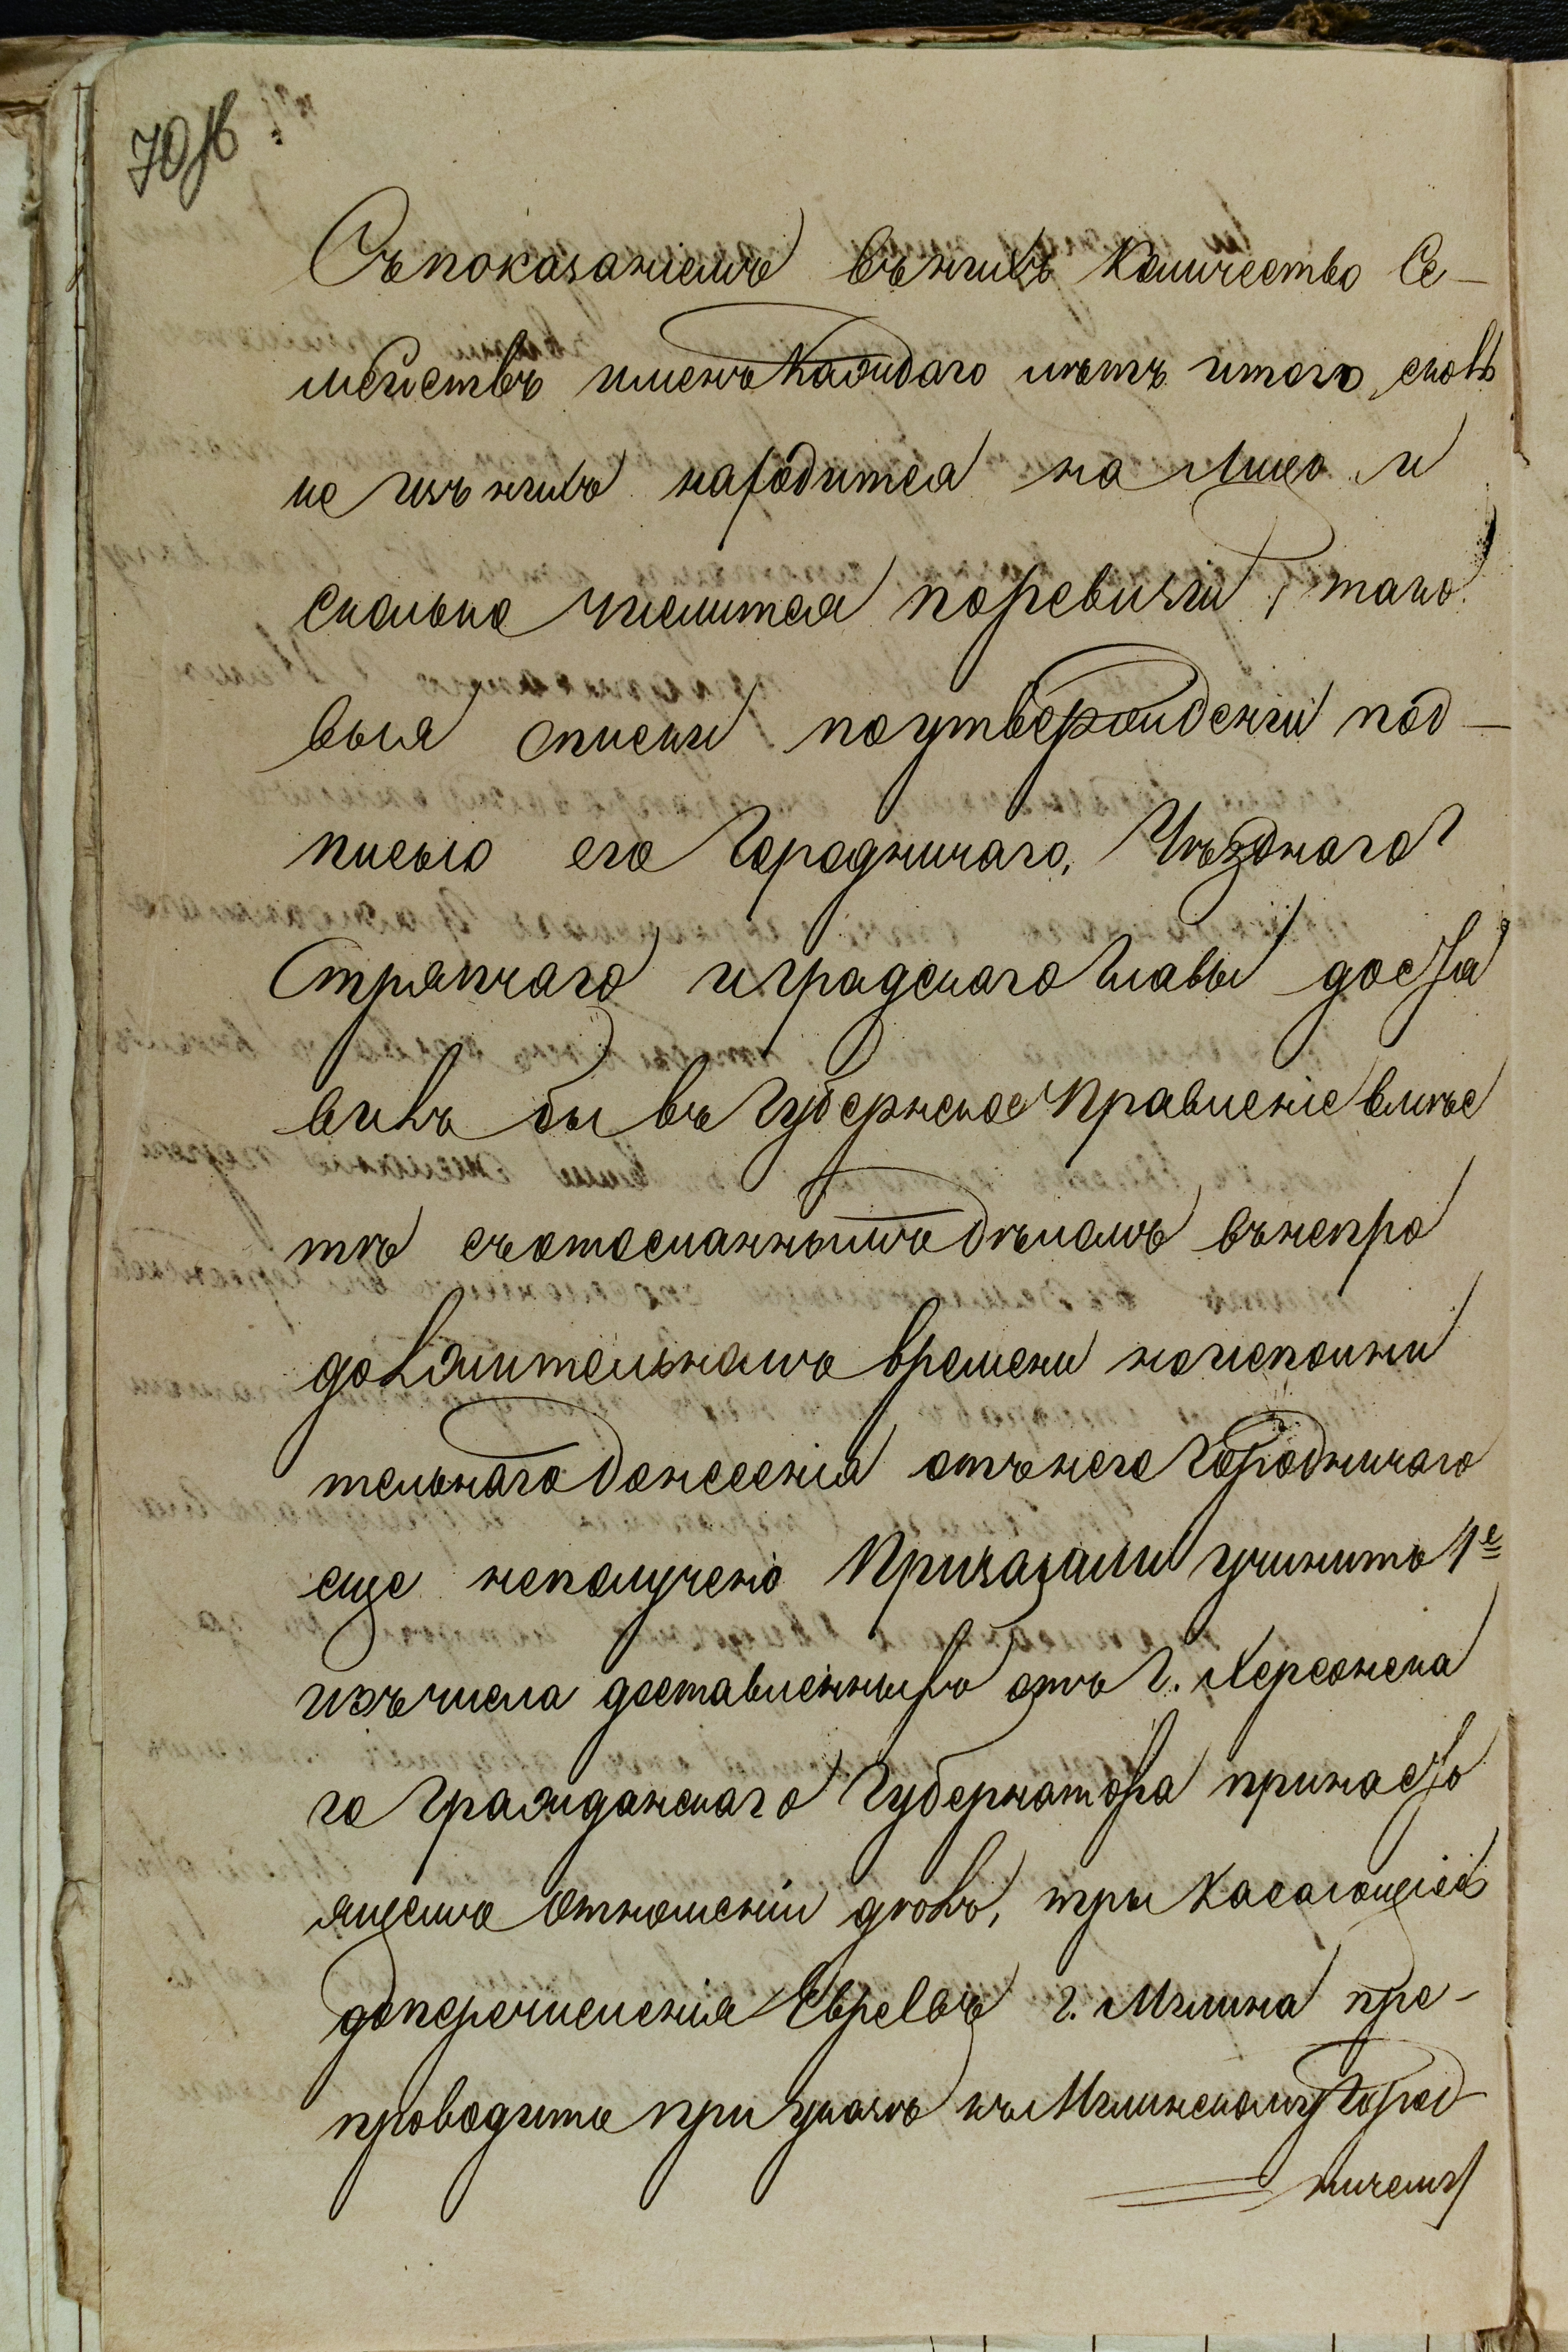 70 об
Съпоказаниемъ въ нихъ количество Се-
мействъ именъ каждаго лѣтъ итого скол
ко изъ нихъ находится на лицо и
сколько числится поревизіи, тако
выя списки поутвержденіи под-
писью его Городничаго, Уѣзднаго
Стряпчаго и градскаго главы доста
вилъ бы въ Губернское Правленіе вмѣс
тѣ съотосланнымъ дѣламъ внепро
должительномъ времени ноисполни
тельнаго донесенія отънего Городничаго
еще неполучено Приказали учинить 1е
изъ числа доставленныхъ отъ Г. Херсонска
го Гражданскаго Губернатора принасто
ящемъ отношеніи дѣлъ, три касающіеся
доперечисленія Евреевъ г. Мглина пре-
проводить при указѣ къ Мглинскому Город-
ничему